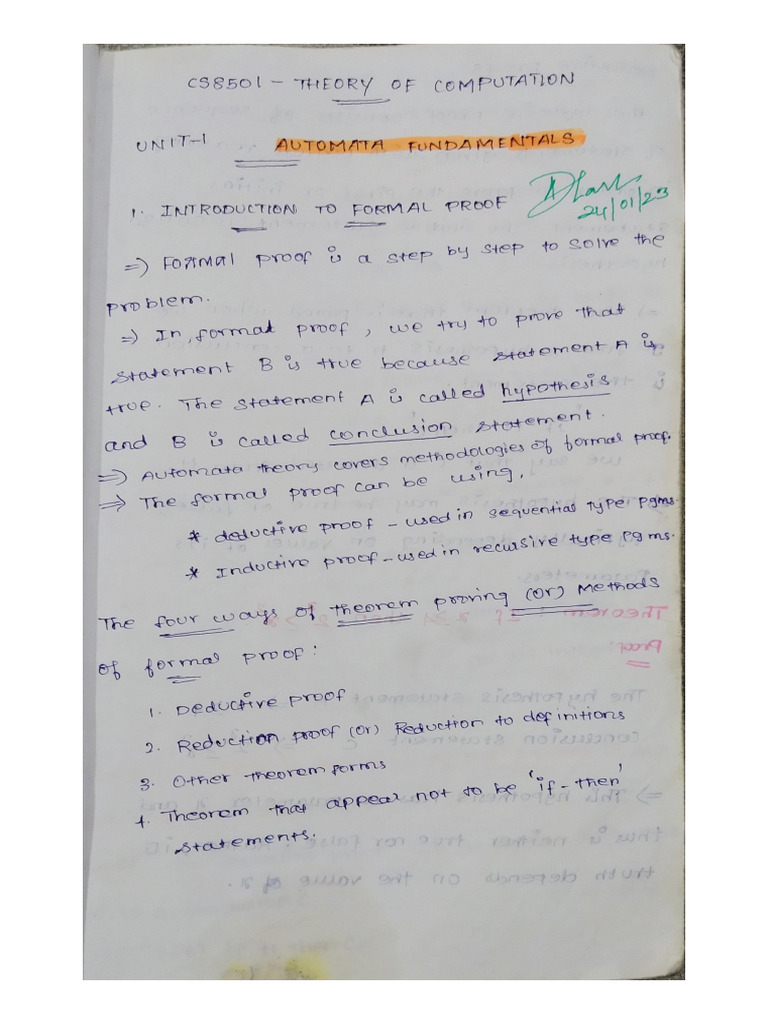 CS8501 - THEORY OF COMPUTATION
UNIT-1 AUTOMATA FUNDAMENTALS
24/01/23
1. INTRODUCTION TO FORMAL PROOF
=> Formal proof is a step by step to solve the
problem.
=> In, formal proof, we try to prove that
statement B is true because statement A is
true. The statement A is called hypothesis
and B is called conclusion statement.
=> Automata theory covers methodologies of formal proof.
=> The formal proof can be using,
* deductive proof - used in sequential type pgms.
* Inductive proof - used in recursive type pgms.
The four ways of theorem proving (or) Methods
of formal proof:
1. Deductive proof
2. Reduction proof (or) Reduction to definitions
3. Other theorem forms
4. Theorem that appear not to be 'if-then'
statements.